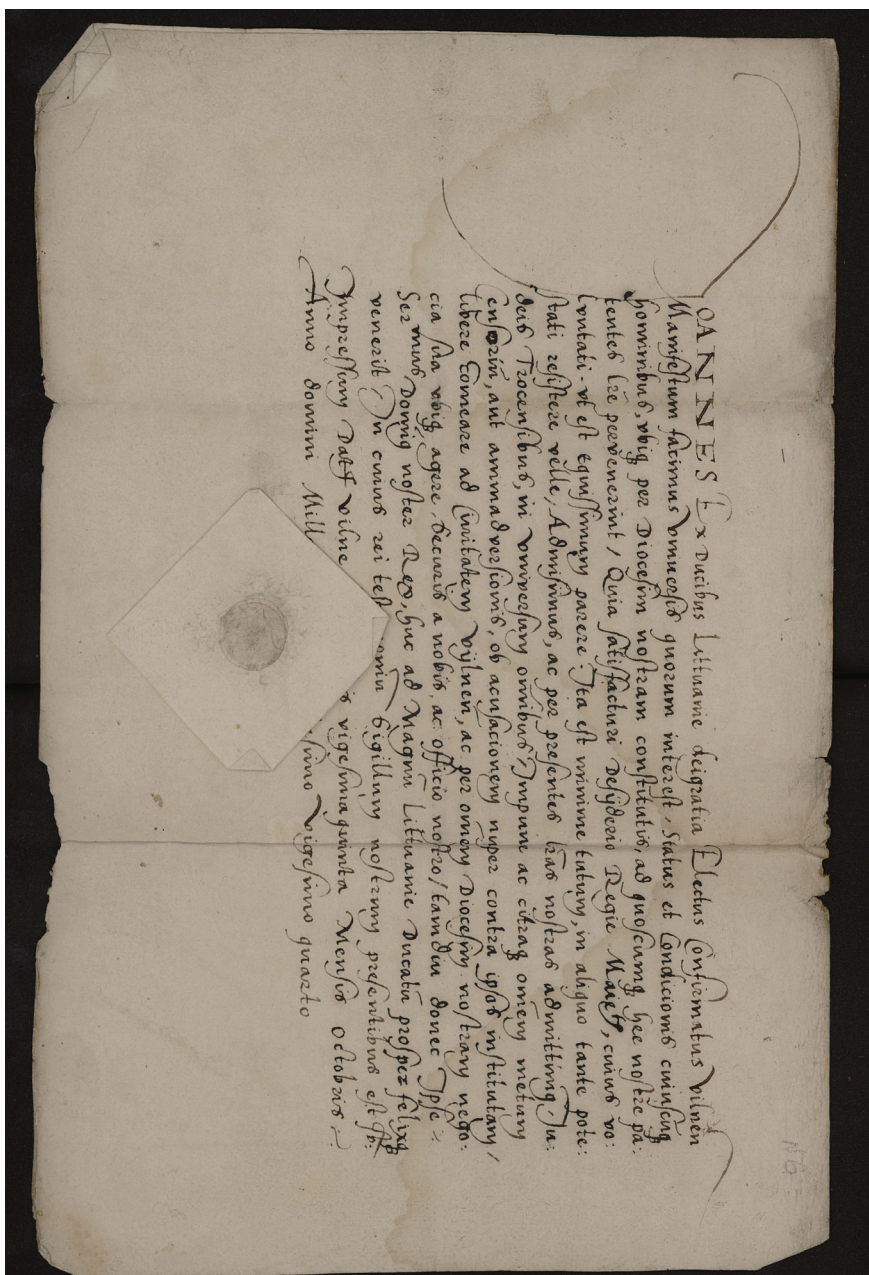 IOANNES Ex Ducibus Littuanie deigratia Electus Confirmatus vilnen
Manifestum facimus vniuersis quorum interest, Status et Condicionis cuiuscuq
hominibus, vbiq per Diocesim nostram constitutis, ad quoscumq hee nostre pa:
tentes lre pervenerint, Quia satisfacturi desyderio Regie Maiest, cuius vo:
luntati vt est equissimum parere: Ita est minime tutum, in aliquo tante pote:
stati resistere velle, Admisimus, ac per presentes lras nostras admittimq Iu:
deis Trocensibus, in vniversum omnibus, Impune ac citraq omem metum
censorin, aut animadversionis, ob acusacionem nuper contra ipsos institutam,
libere Comeare ad Civitatem vylnen, ac per omem Diocesim nostram nego:
cia sua vbiq agere, securis a nobis, ac officio nostro, tamdiu donec Ipse
Ser mus Domiq noster Rex, huc ad Magnu Littuanie Ducatu prosper felixq
venerit, In cuius rei test oniu Sigillum nostrum presentibus est sb:
Impressum Datt vilne is vigesimaquinta Mensis octobris
Anno domini Mill simo vigesimo quarto
N6